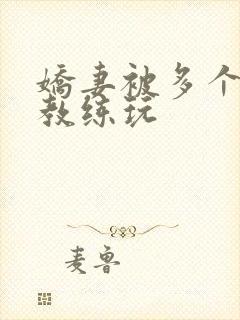 嬌妻被多个
教练玩
麦鲁